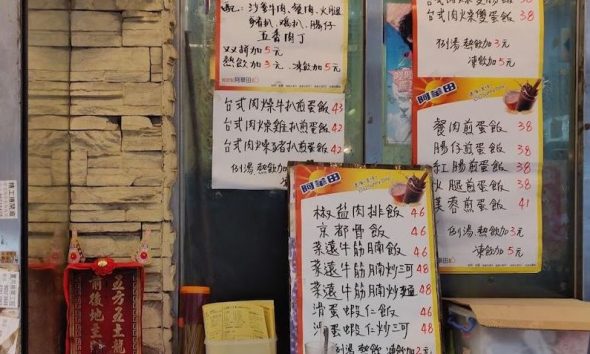 配：沙爹牛肉、餐肉、火腿
豬扒、雞扒、腸仔
五香肉丁
双拼加5元
熱飲加3元、凍飲加5元
阿華田
台式肉燥牛扒煎蛋飯 43
台式肉燥雞扒煎蛋飯 42
台式肉燥豬扒煎蛋飯 42
例湯 熱飲加3元
凍飲加5元
台式肉燥雙蛋飯 38
例湯 熱飲加3元
凍飲加5元
阿華田
餐肉煎蛋飯 38
腸仔煎蛋飯 38
紅腸煎蛋飯 38
火腿煎蛋飯 38
芙蓉煎蛋飯 41
例湯 熱飲加3元
凍飲加5元
阿華田
椒盐肉排飯 46
京都骨飯 46
菜遠牛筋腩飯 46
菜遠牛筋腩炒河 48
菜遠牛筋腩炒麵 48
滑蛋蝦仁飯 46
滑蛋蝦仁炒河 48
例湯 熱飲 凍飲加2元
五方五土龍
前後地主